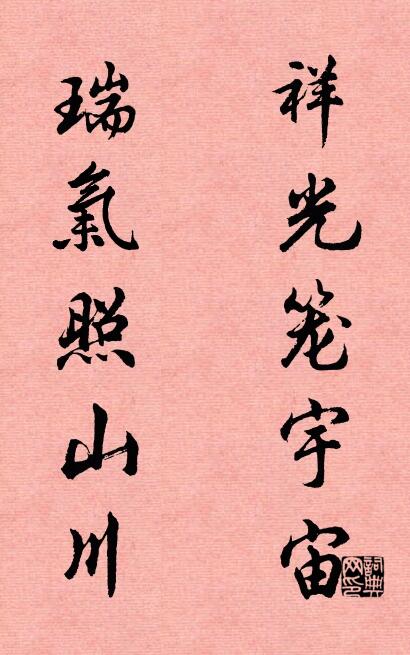 祥光笼宇宙
瑞氣照山川
詞典网印